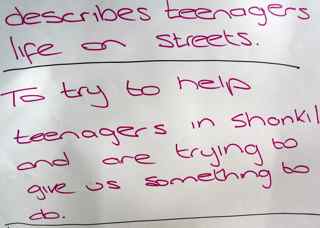 describes teenagers
life on streets.
To try to help
teenagers in Shankil
and are trying to
give us something to
do.